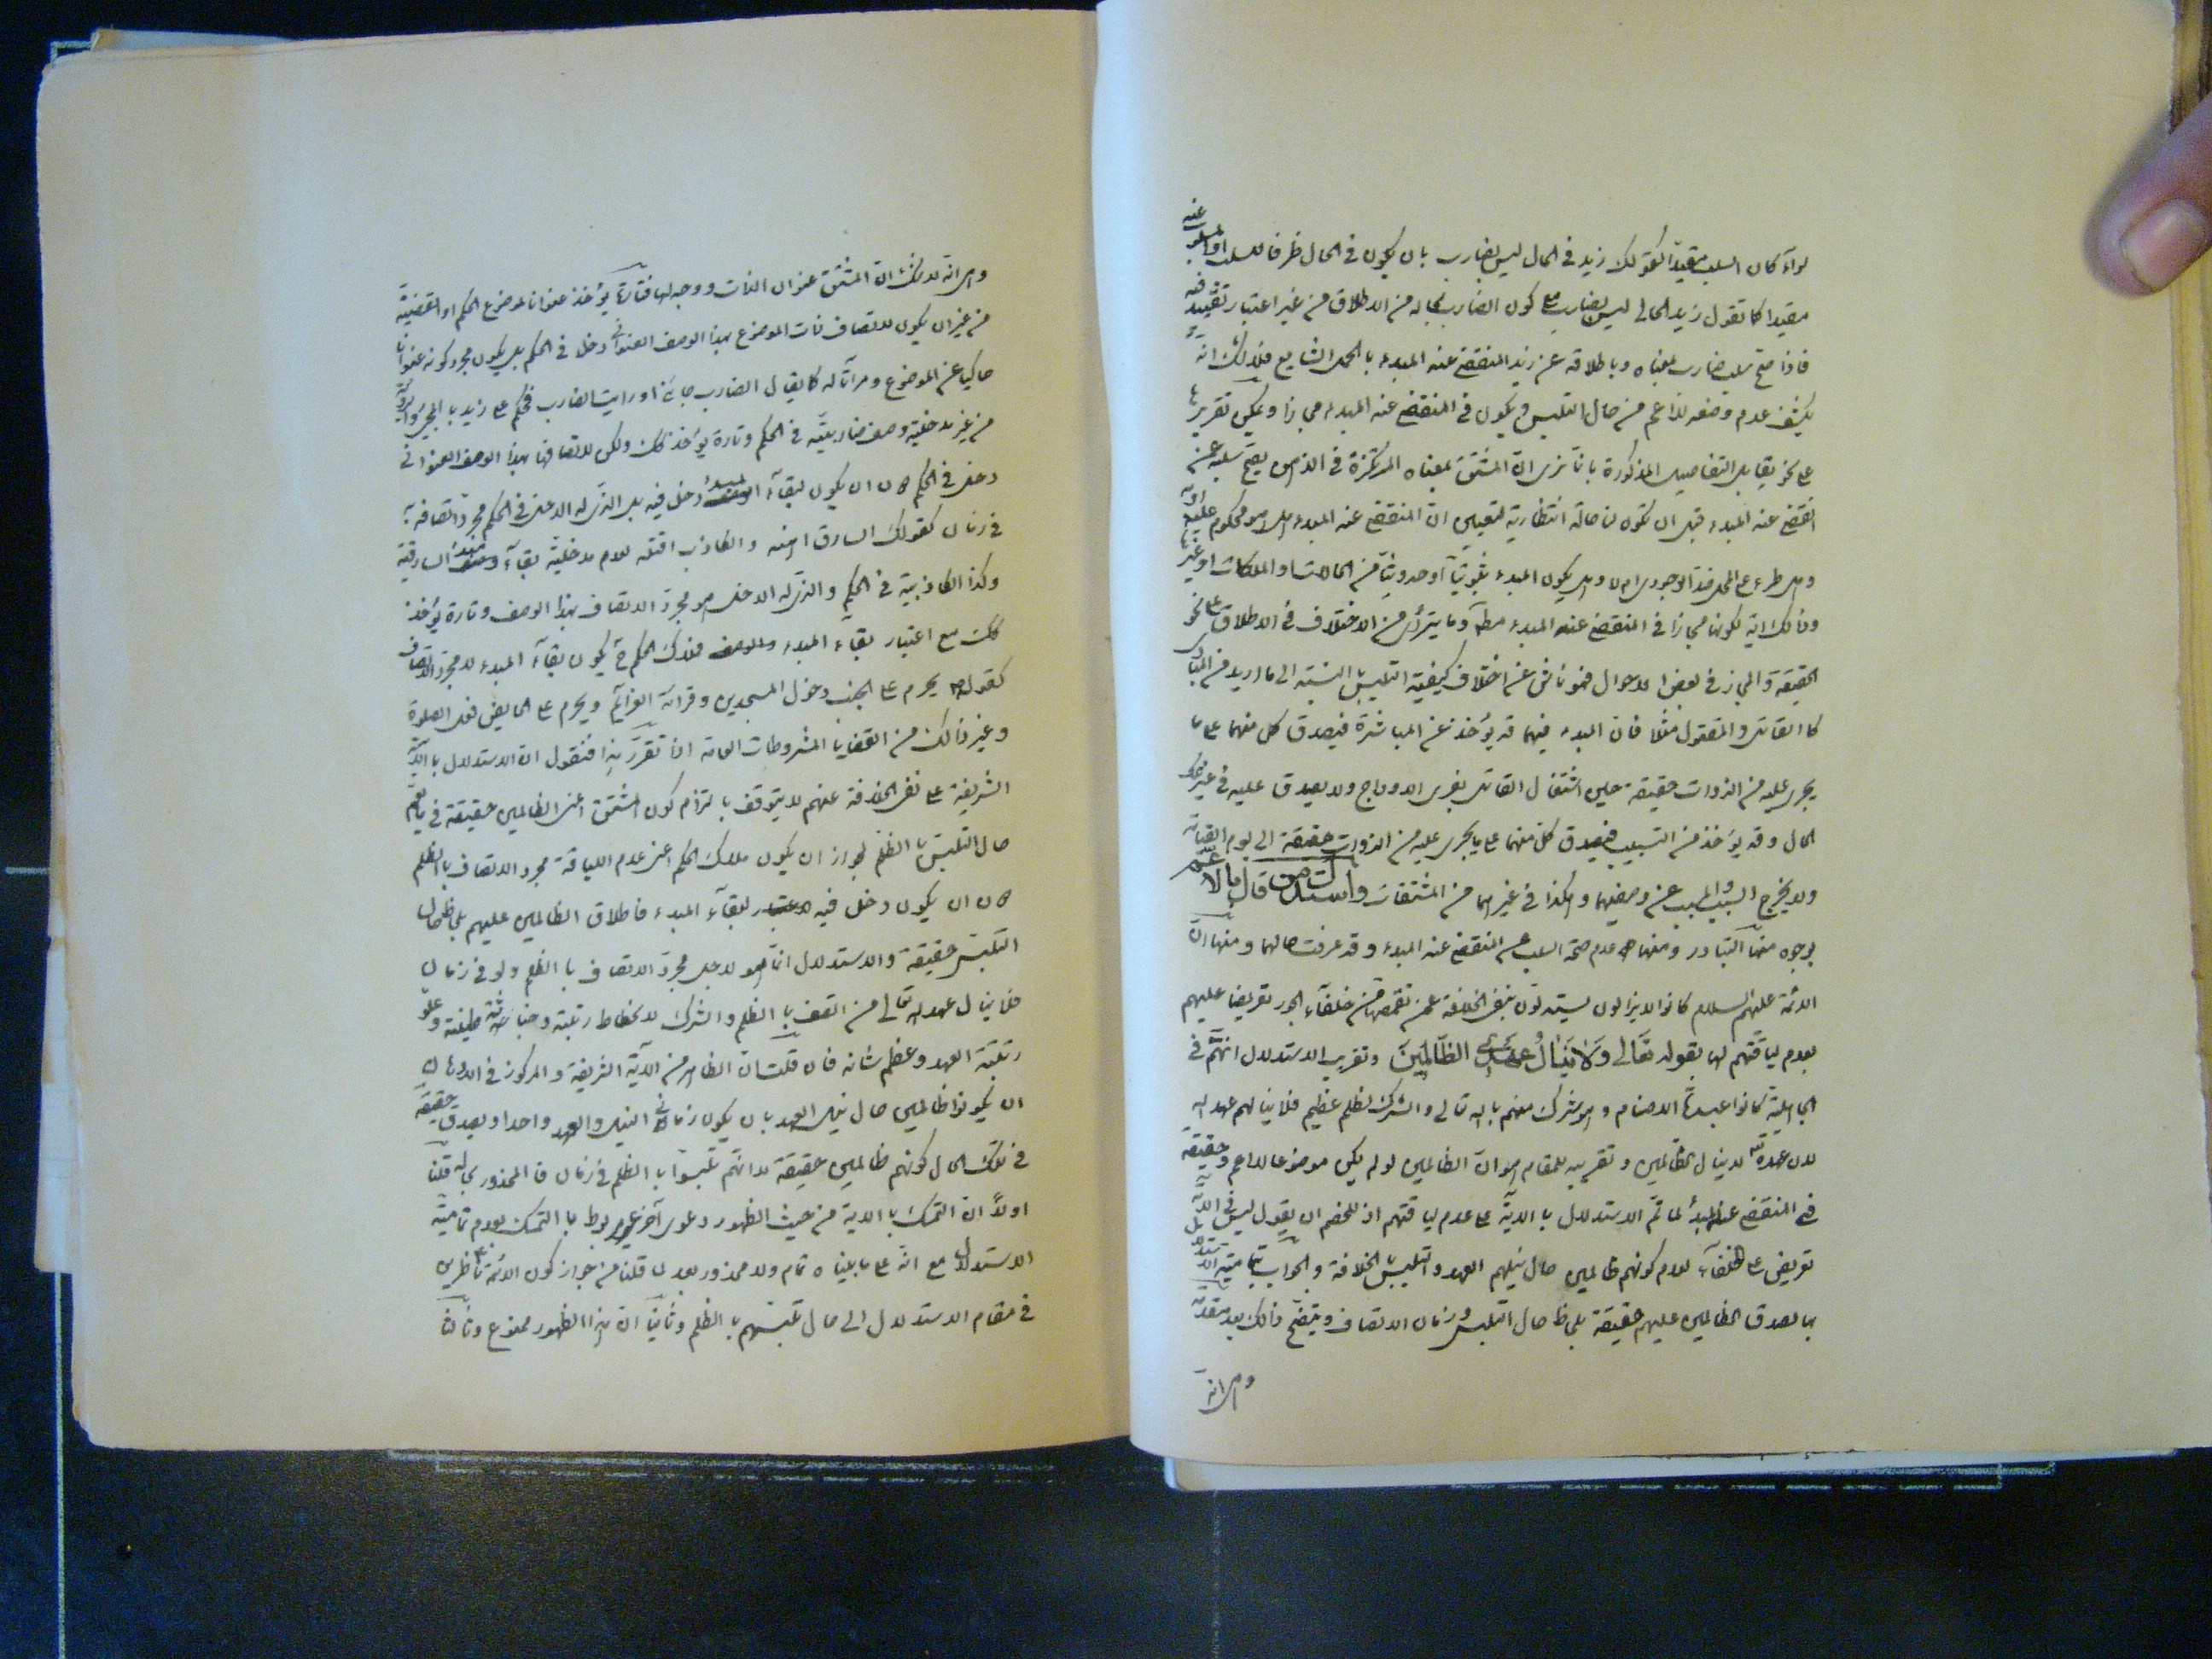 سواء كان السلب مقيدا كقولك زيد في الحال ليس بضارب بان يكون في الحال ظرفا للسلب او المسلوب عنه
مقيدا كما تقول زيد الحالي ليس بضارب مع كون الضارب بحاله من الاطلاق من غير اعتبار تقييد فيه
فاذا صح سلب ضارب بمعناه وباطلاقه عن زيد المنقضي عنه المبدء بالحمل الشايع فلذلك انه
يكشف عدم وضعه للاعم من حال التلبس ويكون في المنقضي عنه المبدء مجازا ويمكن تقريرها
على نحو يقابل التفاصيل المذكورة بانا نرى ان المشتق بمعناه المرتكزة في الاذهان يصح سلبه عن
انقضى عنه المبدء قبل ان تكون لنا حالة انتظارية لتعيين ان المنقضي عنه المبدء هل هو محكوم عليه او به
وهل طرء على المحل ضد الوجودي ام لا وهل يكون المبدء ثبوتيا او حدوثيا من الحالات او الملكات او غيرها
وذلك اية لكونها مجازا في المنقضي عنه المبدء مطلقا وما يترائى من الاختلاف في الاطلاق على نحو
الحقيقة والمجاز في بعض الاحوال فهو ناشئ عن اختلاف كيفية التلبس بالنسبة الى ما اريد من المبادي
كما القاتل والمقتول مثلا فان المبدء فيهما قد يؤخذ عن المباشرة فيصدق كل منهما على ما
يجري عليه من الذوات حقيقة حين اشتغال القاتل بفري الاوداج ولا يصدق عليه في غير تلك
الحال وقد يؤخذ من التسبيب فيصدق كل منهما على ما يجري عليه من الذوات حقيقة الى يوم القيامة
ولا يخرج السبب والمسبب عن وصفيهما وهكذا في غيرهما من المشتقات واستدل من قال بالاعم
بوجوه منها التبادر ومنها عدم صحة السلب عن المنقضي عنه المبدء وقد عرفت حالهما ومنها ان
الائمة عليهم السلام كانوا لا يزالون يستدلون بنفي الخلافة عمن تقمصها من خلفاء الجور تعريضا عليهم
بعدم لياقتهم لها بقوله تعالى وَلَا يَنَالُ عَهْدِي الظَّالِمِينَ وتقريب الاستدلال انهم في
الجاهلية كانوا عبدة الاصنام وهو شرك منهم بالله تعالى والشرك لظلم عظيم فلا ينالهم عهد الله
لان عهده لا ينال الظالمين وتقريبه للمقام هو ان الظالمين لو لم يكن موضوعا للاعم وحقيقة
في المنقضي عنه المبدأ لما تم الاستدلال بالاية على عدم لياقتهم اذ للخصم ان يقول ليس في الاية
تعريض على الخلفاء لعدم كونهم ظالمين حال نيلهم العهد والتلبس بالخلافة والجواب بتمامية الاستدلال
بها لصدق الظالمين عليهم حقيقة بلحاظ حال التلبس وزمان الاتصاف ويتضح ذلك بعد مقدمة
وهي انه
وهي انه لا شك ان المشتق عنوان الذات ووجه لها فتارة يؤخذ عنوانا لموضوع الحكم او القضية
من غير ان يكون لاتصاف ذات الموضوع بهذا الوصف العنواني دخل في الحكم بل يكون مجرد كونه عنوانا
حاكيا عن الموضوع ومرآتا له كما يقال الضارب جائني او رايت الضارب فحكم على زيد بالمجيء والرؤية
من غير مدخلية وصف ضاربيته في الحكم وتارة يؤخذ كك ولكن لاتصافها بهذا الوصف العنواني
دخل في الحكم دون ان يكون لبقاء المبدء دخل فيه بل الذي له الدخل في الحكم مجرد اتصافه
في زمان كقولك السارق اهنه والكاذب اقتله لعدم مدخلية بقاء مبدء السارقية
وكذا الكاذبية في الحكم والذي له الدخل هو مجرد الاتصاف بهذا الوصف وتارة يؤخذ
كك مع اعتبار بقاء المبدء والوصف فملاك الحكم ح يكون بقاء المبدء لا مجرد الاتصاف
كقوله يحرم على الجنب دخول المسجدين وقرائة العزائم ويحرم على الحايض فعل الصلوة
وغير ذلك من القضايا المشروطات العامة اذا تقرر هذا فنقول ان الاستدلال بالاية
الشريفة على نفي الخلافة عنهم لا يتوقف بالتزام كون المشتق اعني الظالمين حقيقة في ما يعم
حال التلبس بالظلم لجواز ان يكون ملاك الحكم اعني عدم اللياقة مجرد الاتصاف بالظلم
دون ان يكون دخل فيه لبقاء المبدء فاطلاق الظالمين عليهم بلحاظ حال
التلبس حقيقة والاستدلال انما هو لاجل مجرد الاتصاف بالظلم ولو في زمان
فلا ينال عهد الله تعالى من اتصف بالظلم والشرك لانحطاط رتبته وخباثة طينته وعلو
رتبة العهد وعظم شانه فان قلت ان الظاهر من الاية الشريفة والمركوز في الاذهان
ان يكونوا ظالمين حال نيل العهد بان يكون زماني النيل والعهد واحدا ويصدق حقيقة
في تلك الحال كونهم ظالمين حقيقة لا انهم تلبسوا بالظلم في زمان فالمحذور بحاله قلنا
اولاً ان التمسك بالاية من حيث الظهور دعوى آخر غير مربوط بالتمسك بعدم تمامية
الاستدلال مع انه على ما بيناه تمام ولا محذور بعد لما قلنا من جواز كون الائمة ع ناظرين
في مقام الاستدلال الى حال تلبسهم بالظلم وثانيا ان هذا الظهور ممنوع وثالثا